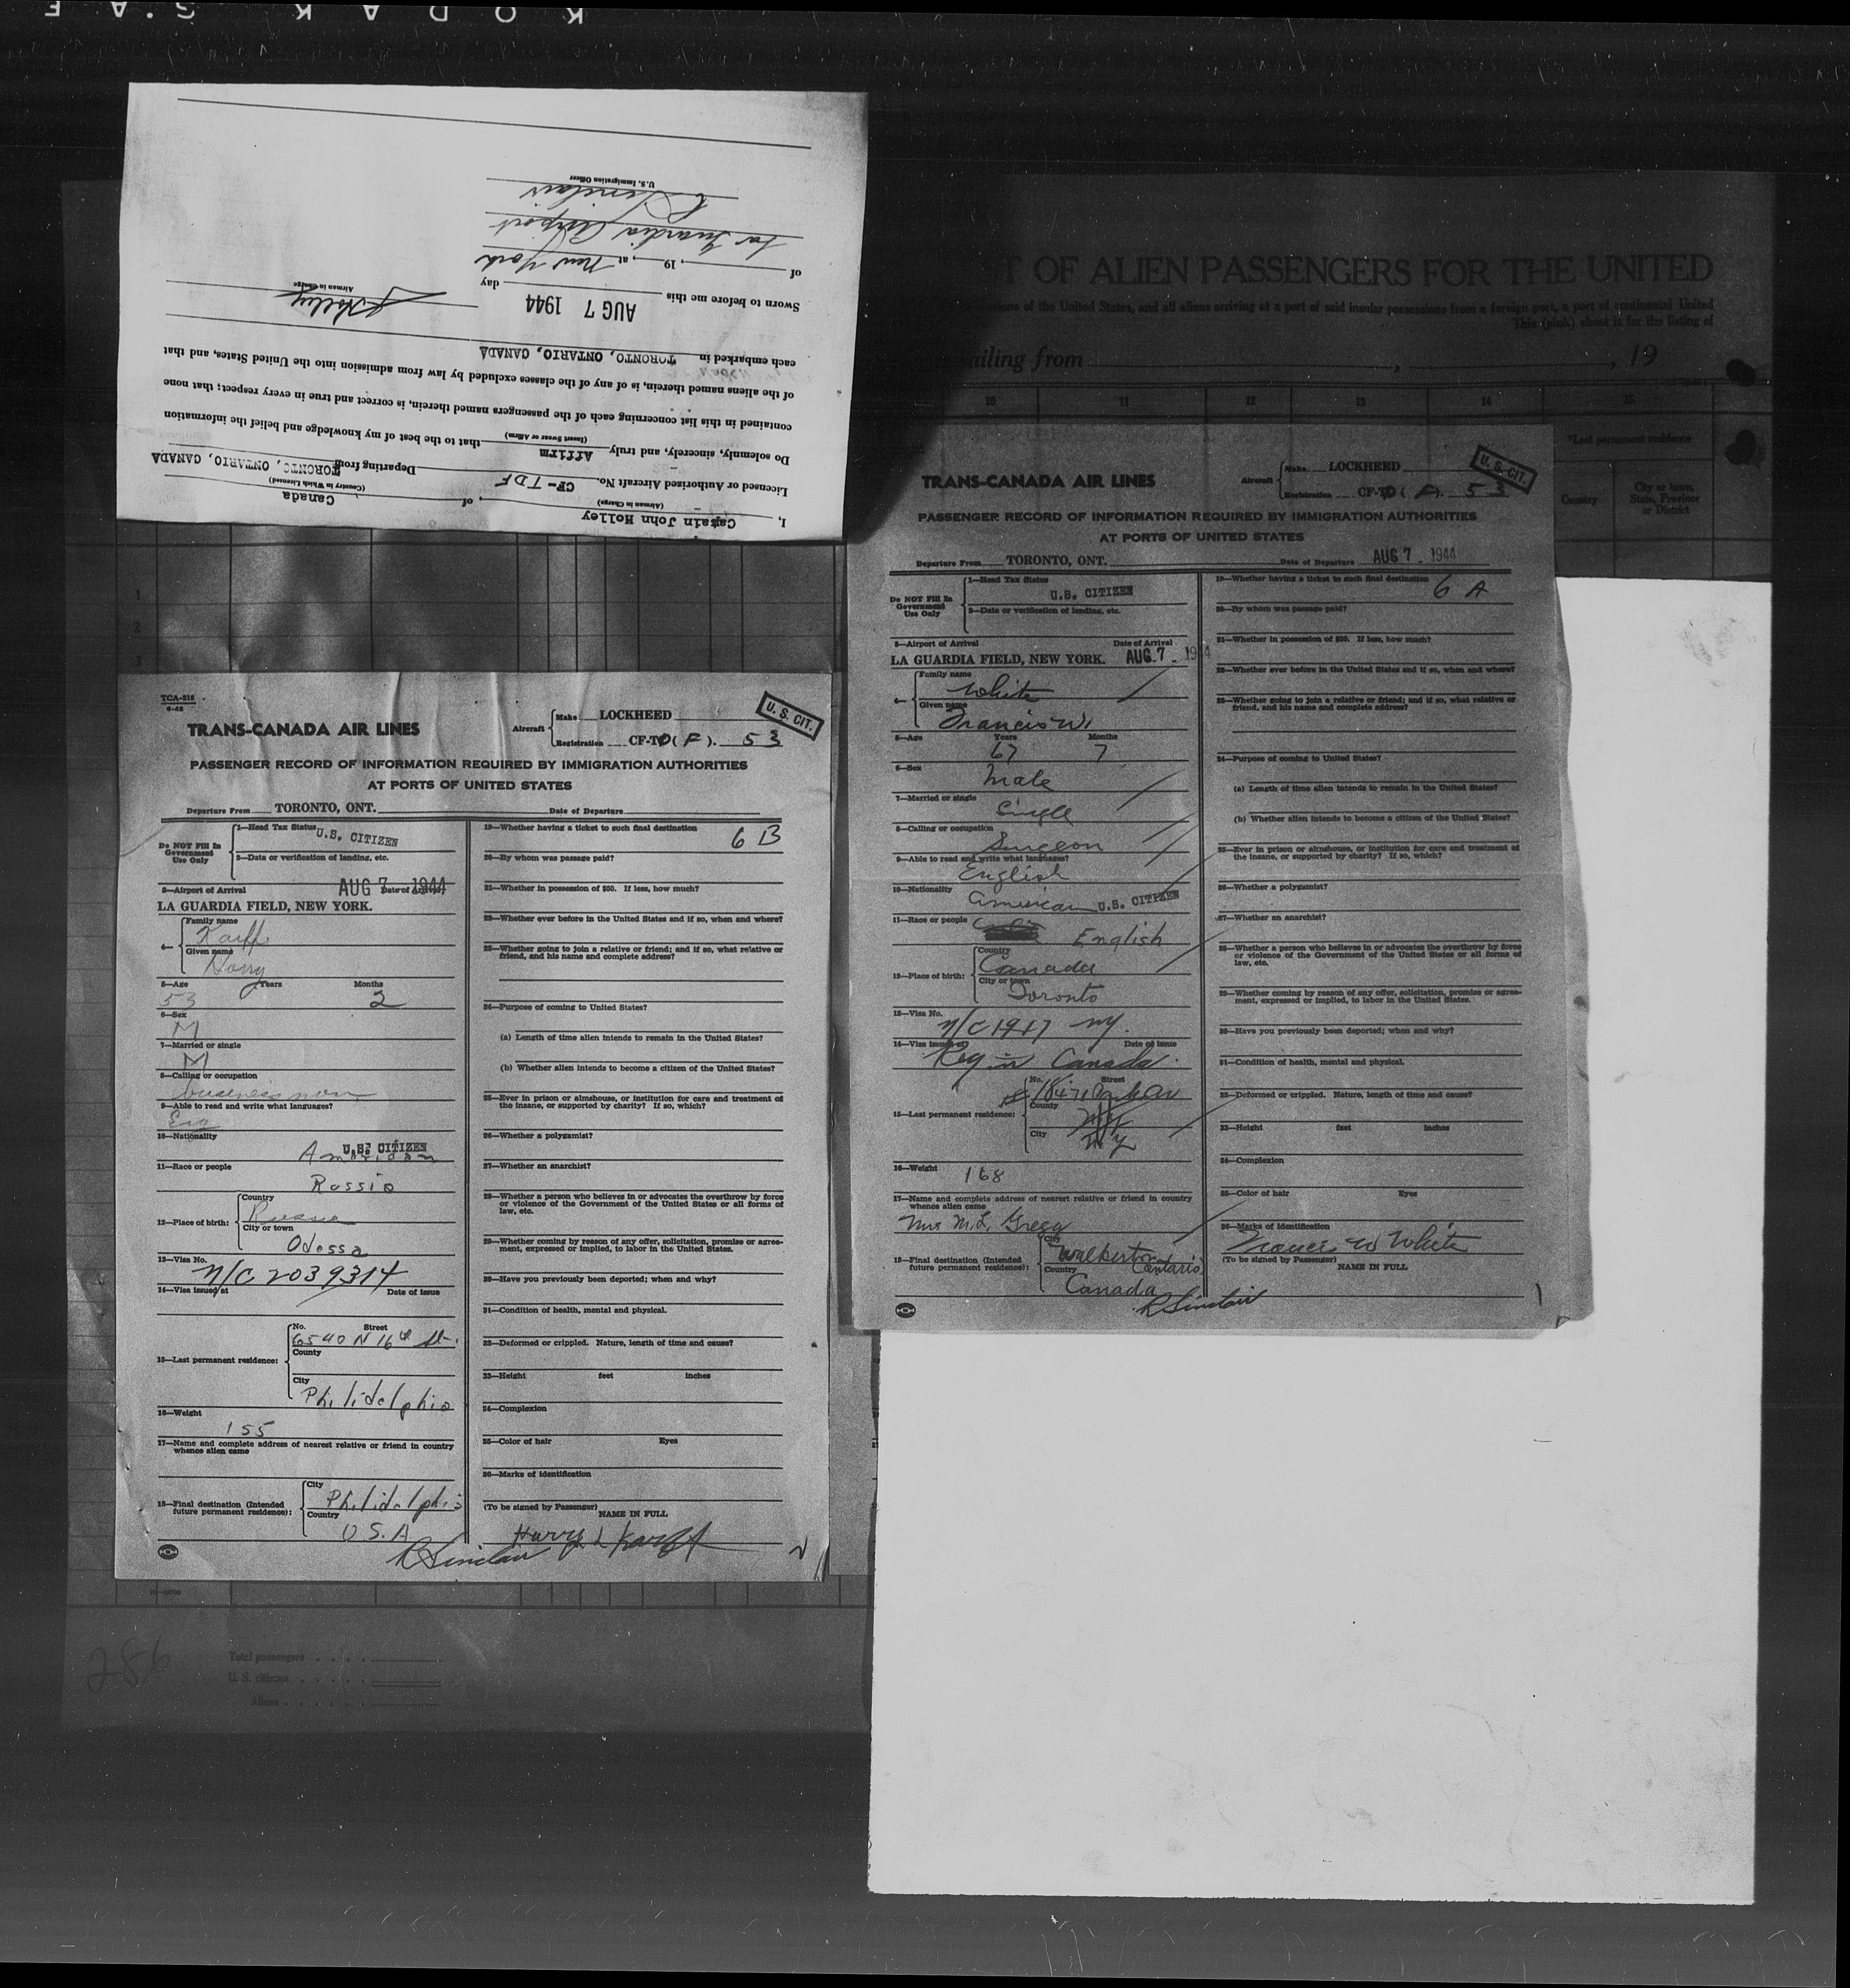 KODAK S.A F
I, Captain John Holley, of Canada
(Airman in Charge) (Country in Which Licensed)
Licensed or Authorized Aircraft No. CF-TDF Departing from TORONTO, ONTARIO, CANADA
Do solemnly, sincerely, and truly Affirm that to the best of my knowledge and belief the information
(Insert Swear or Affirm)
contained in this list concerning each of the passengers named therein, is correct and true in every respect; that none
of the aliens named therein, is of any of the classes excluded by law from admission into the United States, and that
each embarked in TORONTO, ONTARIO, CANADA
J Holley
Airman in Charge
Sworn to before me this AUG 7 1944 day
of , 19 , at New York
La Guardia Airport
R Sinclair
U.S. Immigration Officer
T OF ALIEN PASSENGERS FOR THE UNITED
of the United States, and all aliens arriving at a port of said insular possessions from a foreign port, a port of continental United
This (pink) sheet is for the listing of
ailing from , 19
10 11 12 13 14 15
*Last permanent residence
Country
City or town, State, Province or District
1
2
3
TCA-518
TRANS-CANADA AIR LINES
Aircraft
Make LOCKHEED
Registration CF-TD (F). 53
U. S. CIT.
PASSENGER RECORD OF INFORMATION REQUIRED BY IMMIGRATION AUTHORITIES
AT PORTS OF UNITED STATES
Departure From TORONTO, ONT. Date of Departure
Do NOT Fill In Government Use Only
1—Head Tax Status U.S. CITIZEN
2—Data or verification of landing, etc.
3—Airport of Arrival Date of Arrival AUG 7 1944
LA GUARDIA FIELD, NEW YORK.
4—
Family name
Karff
Given name
Harry
5—Age Years Months
53 2
6—Sex
M
7—Married or single
M
8—Calling or occupation
business man
9—Able to read and write what languages?
Eng
10—Nationality
American U.S. CITIZEN
11—Race or people
Russia
12—Place of birth:
Country
Russia
City or town
Odessa
13—Visa No.
N/C 2039314
14—Visa issued at Date of issue
15—Last permanent residence:
No. Street
6540 N 16th St.
County
City
Philidelphia
16—Weight
155
17—Name and complete address of nearest relative or friend in country whence alien came
18—Final destination (Intended future permanent residence):
City
Philidelphia
Country
U.S.A
R Sinclair
19—Whether having a ticket to such final destination 6 B
20—By whom was passage paid?
21—Whether in possession of $50. If less, how much?
22—Whether ever before in the United States and if so, when and where?
23—Whether going to join a relative or friend; and if so, what relative or friend, and his name and complete address?
24—Purpose of coming to United States?
(a) Length of time alien intends to remain in the United States?
(b) Whether alien intends to become a citizen of the United States?
25—Ever in prison or almshouse, or institution for care and treatment of the insane, or supported by charity? If so, which?
26—Whether a polygamist?
27—Whether an anarchist?
28—Whether a person who believes in or advocates the overthrow by force or violence of the Government of the United States or all forms of law, etc.
29—Whether coming by reason of any offer, solicitation, promise or agreement, expressed or implied, to labor in the United States.
30—Have you previously been deported; when and why?
31—Condition of health, mental and physical.
32—Deformed or crippled. Nature, length of time and cause?
33—Height feet inches
34—Complexion
35—Color of hair Eyes
36—Marks of identification
(To be signed by Passenger) NAME IN FULL
Harry L Karff
286
Total passengers
U. S. citizens
Aliens
TRANS-CANADA AIR LINES
Aircraft
Make LOCKHEED
Registration CF-TD (F). 53
U. S. CIT.
PASSENGER RECORD OF INFORMATION REQUIRED BY IMMIGRATION AUTHORITIES
AT PORTS OF UNITED STATES
Departure From TORONTO, ONT. Date of Departure AUG 7 - 1944
Do NOT Fill In Government Use Only
1—Head Tax Status
U.S. CITIZEN
2—Data or verification of landing, etc.
3—Airport of Arrival Date of Arrival
LA GUARDIA FIELD, NEW YORK. AUG 7 - 1944
4—
Family name
White
Given name
Francis W
5—Age Years Months
67 7
6—Sex
Male
7—Married or single
Single
8—Calling or occupation
Surgeon
9—Able to read and write what languages?
English
10—Nationality
American U.S. CITIZEN
11—Race or people
English
12—Place of birth:
Country
Canada
City or town
Toronto
13—Visa No.
N/C 1917 NY.
14—Visa issued at Date of issue
Reg in Canada
15—Last permanent residence:
No. Street
County
City
NY
16—Weight
168
17—Name and complete address of nearest relative or friend in country whence alien came
Mrs M.L. Gregg
18—Final destination (Intended future permanent residence):
City
Walkerton Ontario
Country
Canada
R Sinclair
19—Whether having a ticket to such final destination 6 A
20—By whom was passage paid?
21—Whether in possession of $50. If less, how much?
22—Whether ever before in the United States and if so, when and where?
23—Whether going to join a relative or friend; and if so, what relative or friend, and his name and complete address?
24—Purpose of coming to United States?
(a) Length of time alien intends to remain in the United States?
(b) Whether alien intends to become a citizen of the United States?
25—Ever in prison or almshouse, or institution for care and treatment of the insane, or supported by charity? If so, which?
26—Whether a polygamist?
27—Whether an anarchist?
28—Whether a person who believes in or advocates the overthrow by force or violence of the Government of the United States or all forms of law, etc.
29—Whether coming by reason of any offer, solicitation, promise or agreement, expressed or implied, to labor in the United States.
30—Have you previously been deported; when and why?
31—Condition of health, mental and physical.
32—Deformed or crippled. Nature, length of time and cause?
33—Height feet inches
34—Complexion
35—Color of hair Eyes
36—Marks of identification
Francis W White
(To be signed by Passenger) NAME IN FULL